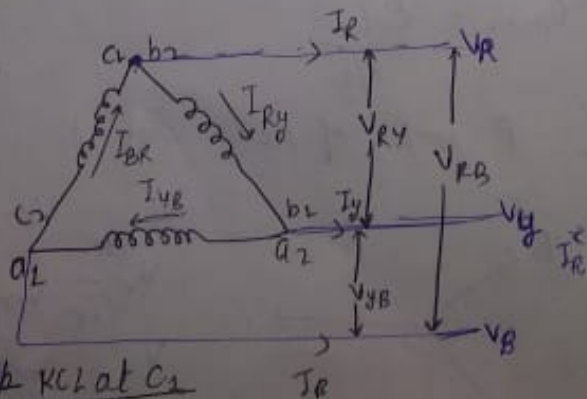 I_R
c_1 b_2 V_R
I_RY
I_BR V_RY
V_RB
I_YB
b_1 I_Y V_Y
a_2
a_1
I_R
V_YB
V_B
KCL at C_1